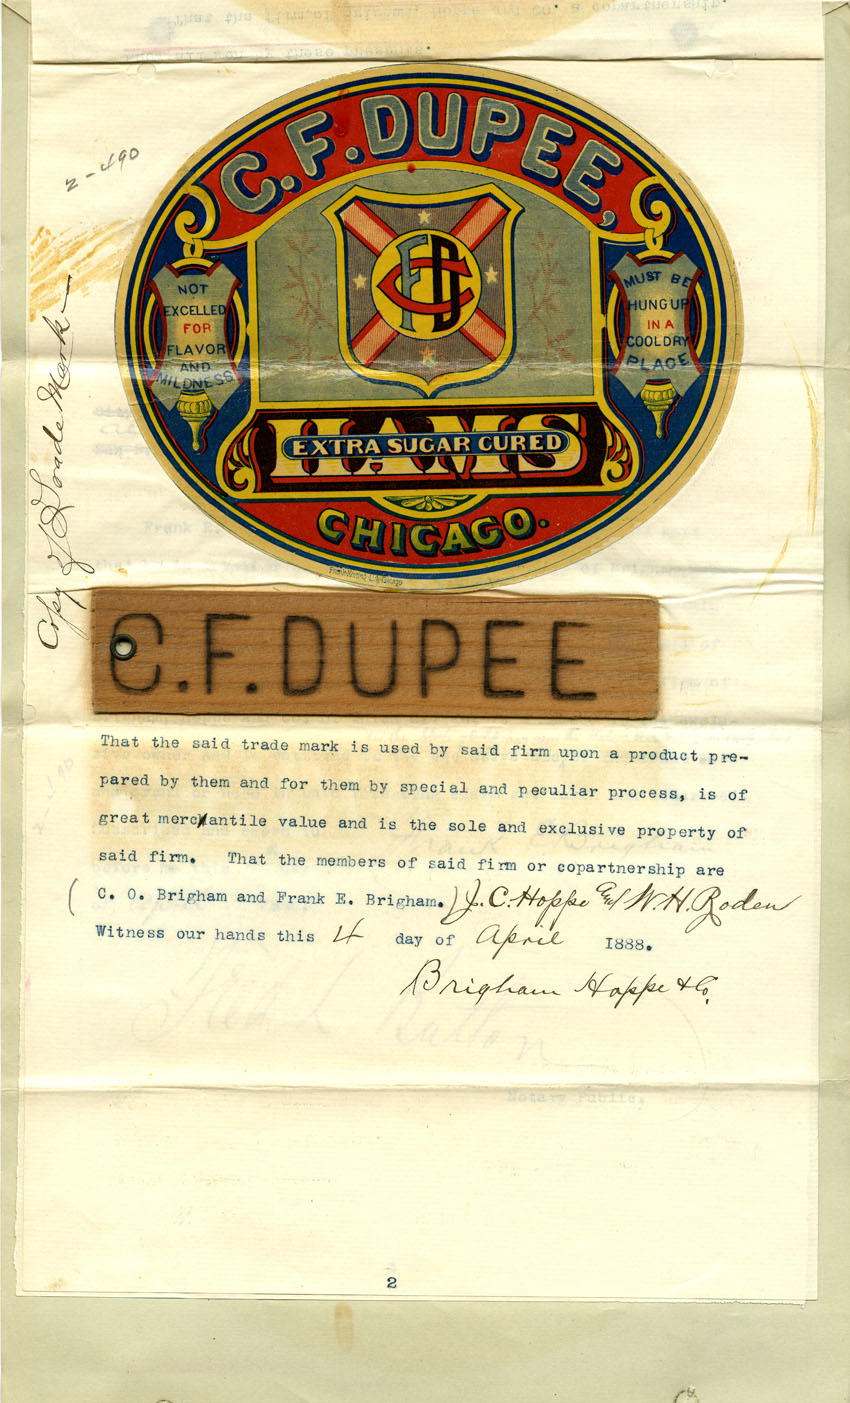 2-490
Copy of Trade Mark
C.F. DUPEE,
NOT
EXCELLED
FOR
FLAVOR
AND
MILDNESS
CFD
MUST BE
HUNG UP
IN A
COOL DRY
PLACE
HAMS
EXTRA SUGAR CURED
CHICAGO.
C.F. DUPEE
That the said trade mark is used by said firm upon a product pre-
pared by them and for them by special and peculiar process, is of
great merchantile value and is the sole and exclusive property of
said firm. That the members of said firm or copartnership are
(C. O. Brigham and Frank E. Brigham.) J. C. Hoppe and W. H. Roden
Witness our hands this 4 day of April 1888.
Brigham Hoppe & Co.
Notary Public.
2